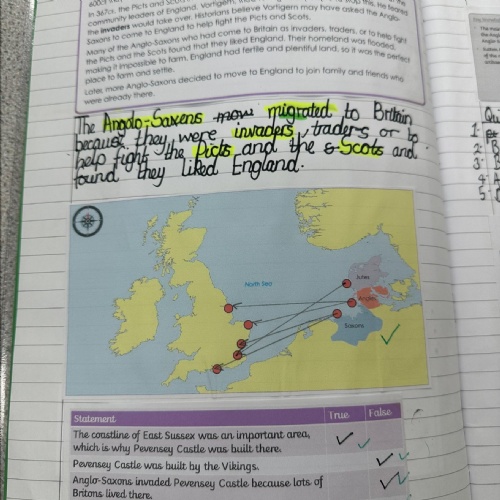 In 367CE, the Picts and Scots
community leaders of England, Vortigern,
the invaders would take over. Historians believe Vortigern may have asked the Anglo-
Saxons to come to England to help fight the Picts and Scots.
Many of the Anglo-Saxons who had come to Britain as invaders, traders, or to help fight
the Picts and the Scots found that they liked England. Their homeland was flooded,
making it impossible to farm. England had fertile and plentiful land, so it was the perfect
place to farm and settle.
Later, more Anglo-Saxons decided to move to England to join family and friends who
were already there.
The Anglo-Saxens mow migrated to Britain
because they were invaders, traders or to
help fight the Picts and the s Scots and
found they liked England.
North Sea
Jutes
Angles
Saxons
Statement True False
The coastline of East Sussex was an important area,
which is why Pevensey Castle was built there.
Pevensey Castle was built by the Vikings.
Anglo-Saxons invaded Pevensey Castle because lots of
Britons lived there.
Qu
1
2
3
4
5